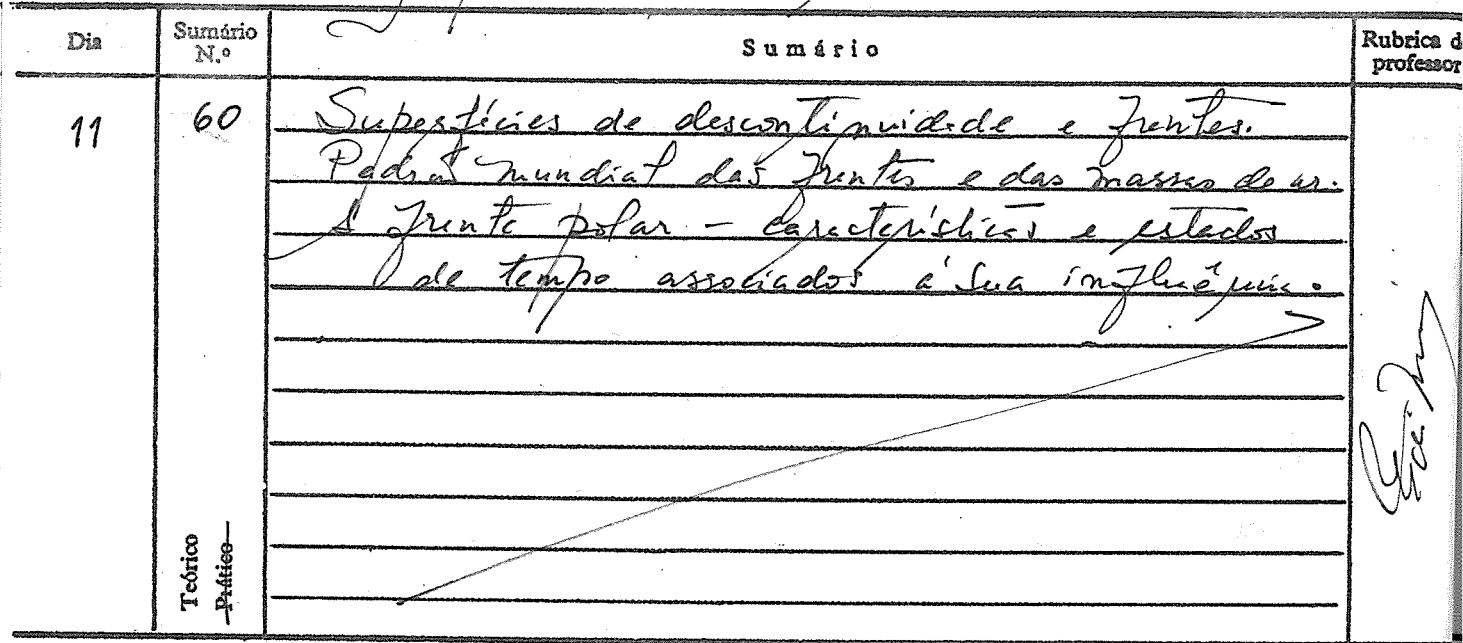 Dia
Sumário N.º
Sumário
Rubrica d
professor
11
60
Superfícies de descontinuidade e frentes.
Padrão mundial das frentes e das massas de ar.
A frente polar - características e estados
de tempo associados à sua influência.
Teórico
Prático